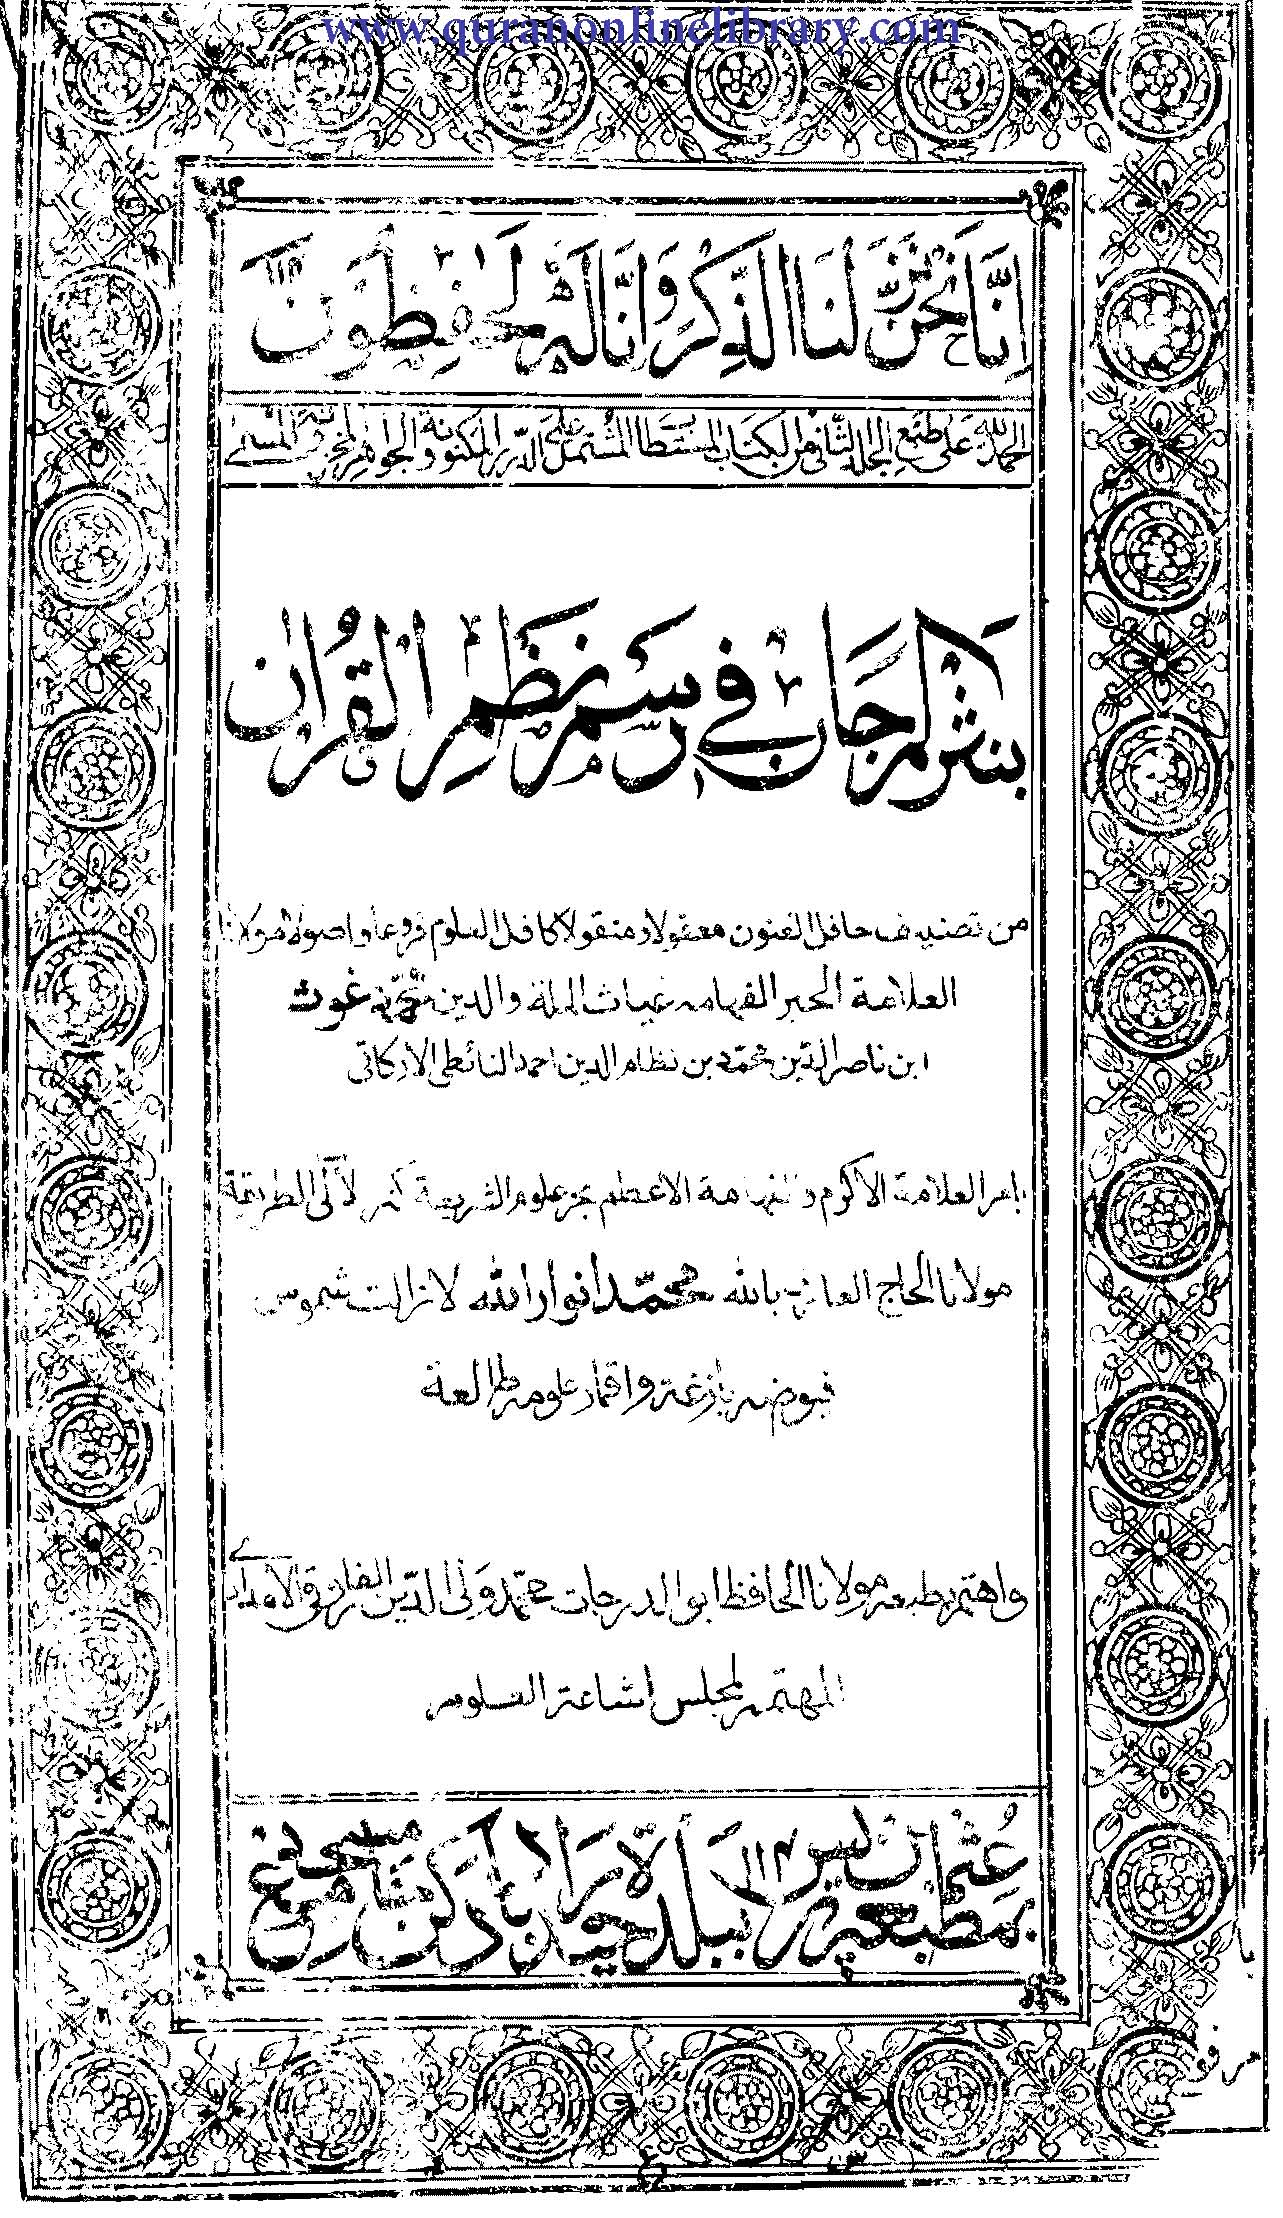 www.quranonlinelibrary.com
اِنَّا نَحْنُ نَزَّلْنَا الذِّكْرَ وَاِنَّا لَهٗ لَحٰفِظُوْنَ
الحمد لله على طبع الجلد الثانى من الكتاب المستطاب المشتمل على الدرر المكنونة والجواهر المخزونة المسمى
بنثر المرجان فى رسم نظم القران
من تصنيف حافل الفنون معقولا ومنقولا كافل العلوم فروعا واصولا مولانا
العلامة الحبر الفهامه غياث الملة والدين محمد غوث
ابن ناصر الدين محمد بن نظام الدين احمد النائطى الاركاتى
بامر العلامة الاكرم والفهامة الاعظم بحر علوم الشريعة لآلى الطريقة
مولانا الحاج العارف بالله محمد انوار الله لا زالت شموس
فيوضه بازغة واقمار علومه طالعة
واهتم بطبعه مولانا الحافظ ابو الدرجات محمد ولى الدين الفاروقى
المهتمم لمجلس اشاعة العلوم
بمطبعة عثمان پريس ببلدة حيدراباد دكن